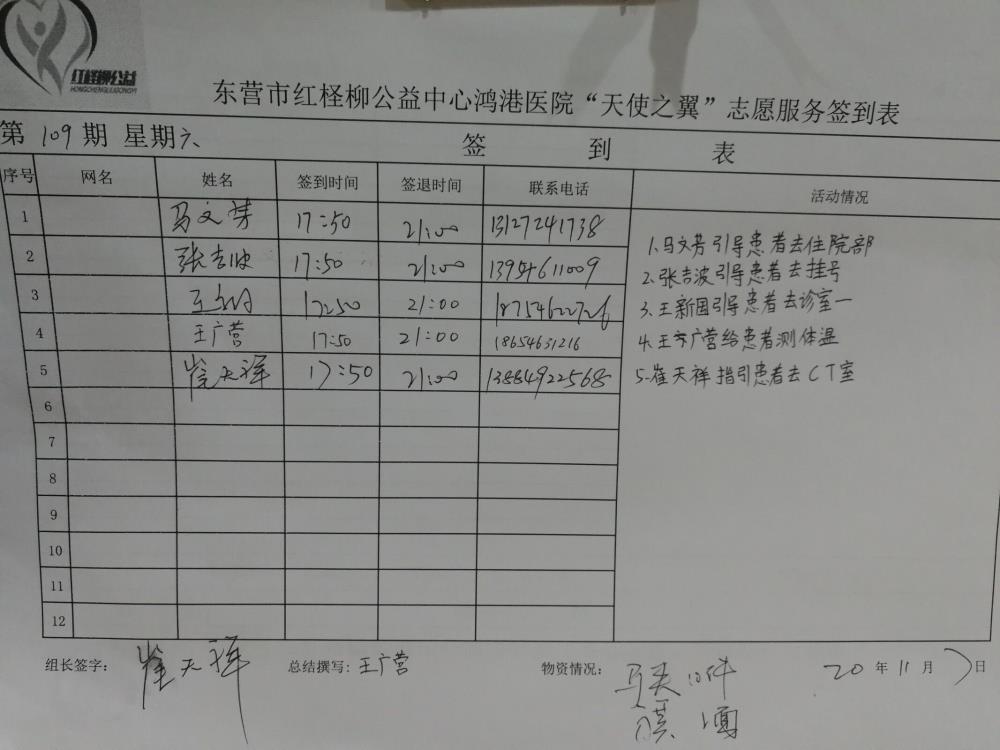 红柽柳公益
HONGCHENGLIUGONGYI
东营市红柽柳公益中心鸿港医院“天使之翼”志愿服务签到表
第 109 期 星期六 签 到 表
序号 网名 姓名 签到时间 签退时间 联系电话 活动情况
1 马文芳 17:50 21:00 13127241738
2 张吉波 17:50 21:00 13954611009
3 17:50 21:00
4 王广营 17:50 21:00 18654631216
5 崔天祥 17:50 21:00 13884922568
6
7
8
9
10
11
12
1.马文芳引导患者去住院部
2.张吉波引导患者去挂号
3.王新国引导患者去诊室一
4.王广营给患者测体温
5.崔天祥指引患者去CT室
组长签字: 崔天祥 总结撰写: 王广营 物资情况: 马夹10件
20 年 11 月 7 日